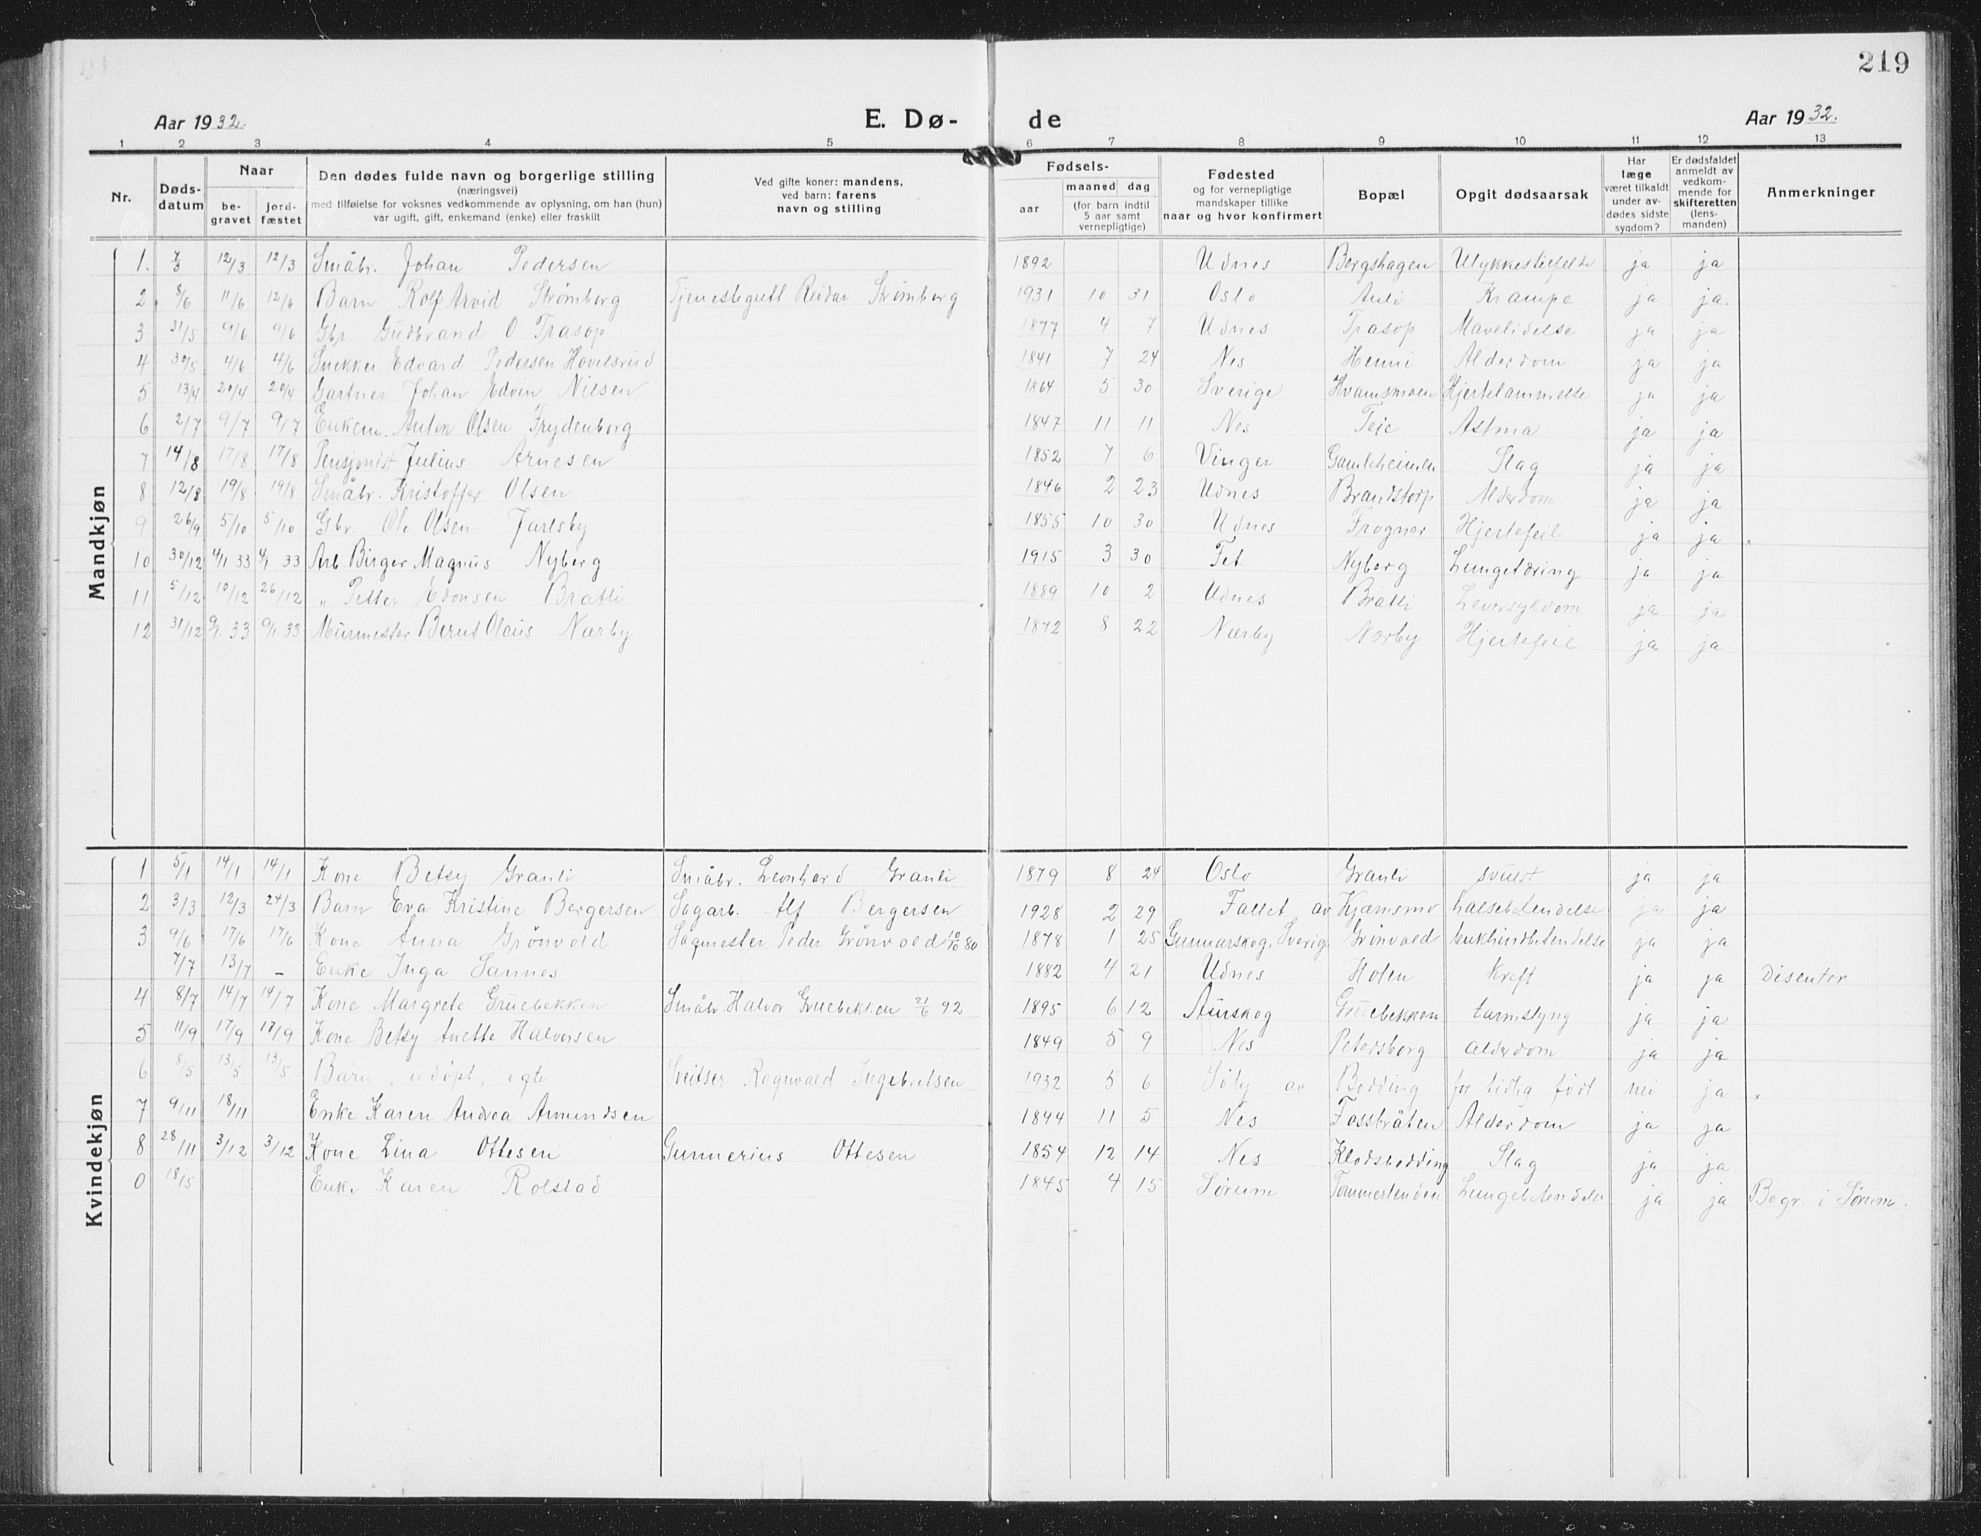 219
Aar 1932. E. Dø- de Aar 1932.
1 2 3 4 5 6 7 8 9 10 11 12 13
Nr. Døds-datum Naar be-gravet jord-fæstet Den dødes fulde navn og borgerlige stilling (næringsvei) med tilføielse for voksnes vedkommende av oplysning, om han (hun) var ugift, gift, enkemand (enke) eller fraskilt Ved gifte koner: mandens, ved barn: farens navn og stilling Fødsels- aar maaned dag (for barn indtil 5 aar samt vernepligtige) Fødested og for vernepligtige mandskaper tillike naar og hvor konfirmert Bopæl Opgit dødsaarsak Har læge været tilkaldt under av-dødes sidste sygdom? Er dødsfaldet anmeldt av vedkom-mende for skifteretten (lens-manden) Anmerkninger
Mandkjøn
1. 7/3 12/3 12/3 Småbr. Johan Pedersen 1892 Udnes Borgshagen Ulykkestilfelde ja ja
2 8/6 11/6 12/6 Barn Rolf Arvid Strømborg Tjenestegutt Reidar Strømborg 1931 10 31 Oslo Auli Krampe ja ja.
3 31/5 9/6 9/6 Gbr. Gudbrand O. Trasop 1877 4 7 Udnes Trasop Mavelidelse ja ja
4 30/5 4/6 4/6 Snekker Edvard Pedersen Hovelsrud 1841 7 24 Nes Henni Alderdom ja ja
5 13/4 20/4 20/4 Gartner Johan Edvin Nilsen 1864 5 30 Sverige Hvamsmoen Hjertelammelse ja ja
6 2/7 9/7 9/7 Enkem. Anton Olsen Frydenborg 1847 11 11 Nes Teie Astma ja ja
7 14/8 17/8 17/8 Pensjonist Julius Arnesen 1852 7 6 Vinger Gamleheimen Slag ja ja
8 12/8 19/8 19/8 Småbr. Kristoffer Olsen 1846 2 23 Udnes Brandstorp Alderdom ja ja
9 26/9 5/10 5/10 Gbr. Ole Olsen Jarlsby 1855 10 30 Udnes Frogner Hjertefeil ja ja
10 30/12 4/1 33 4/1 33 Arb. Birger Magnus Nyborg 1915 3 30 Fet Nyborg Lungetæring ja ja
11 5/12 10/12 26/12 " Petter Edonsen Bratli 1889 10 2 Udnes Bratli Leversykdom ja ja
12 31/12 9/1 33 9/1 33 Murmester Bernt Olaus Nærby 1872 8 22 Nærby Nærby Hjertefeil ja ja
Kvindekjøn
1 5/1 14/1 14/1 Kone Betsy Granli Småbr. Leonhard Granli 1879 8 24 Oslo Granli svulst ja ja
2 3/3 12/3 24/3 Barn Eva Kristine Bergersen Sagarb. Alf Bergersen 1928 2 29 Fallet av Kjæmsmo halsebetendelse ja ja
3 9/6 17/6 17/6 Kone Anna Grönvold Sagmester Peder Grönvold 10/10 80 1878 1 25 Gunnarskog, Sverig. Grönvold bukhindbetendelse ja ja
7/7 13/7 - Enke Inga Sannes 1882 4 21 Udnes Holen Kreft ja ja Disenter
4 8/7 14/7 14/7 Kone Margrete Gruebekken Småbr. Halvor Gruebekken 21/6 92 1895 6 12 Aurskog Gruebekken tarmslyng ja ja
5 11/9 17/9 17/9 Kone Betsy Anette Halvorsen 1849 5 9 Nes Petersborg alderdom ja ja
6 8/5 13/5 13/5 Barn, udöpt, egte Sveitser Ragnvald Ingebretsen 1932 5 6 Söly av Bodding for tidlig född nei ja
7 9/11 18/11 Enke Karen Andrea Amundsen 1844 11 5 Nes Fossbråten Alderdom ja ja
8 28/11 3/12 3/12 Kone Lina Ottesen Gunnerius Ottesen 1854 12 14 Nes Klodsbodding Slag ja ja
0 18/5 Enke Karen Rolstad 1845 4 15 Sörum Tommerstenden Lungebetendelse ja ja Begr. i Sörum.